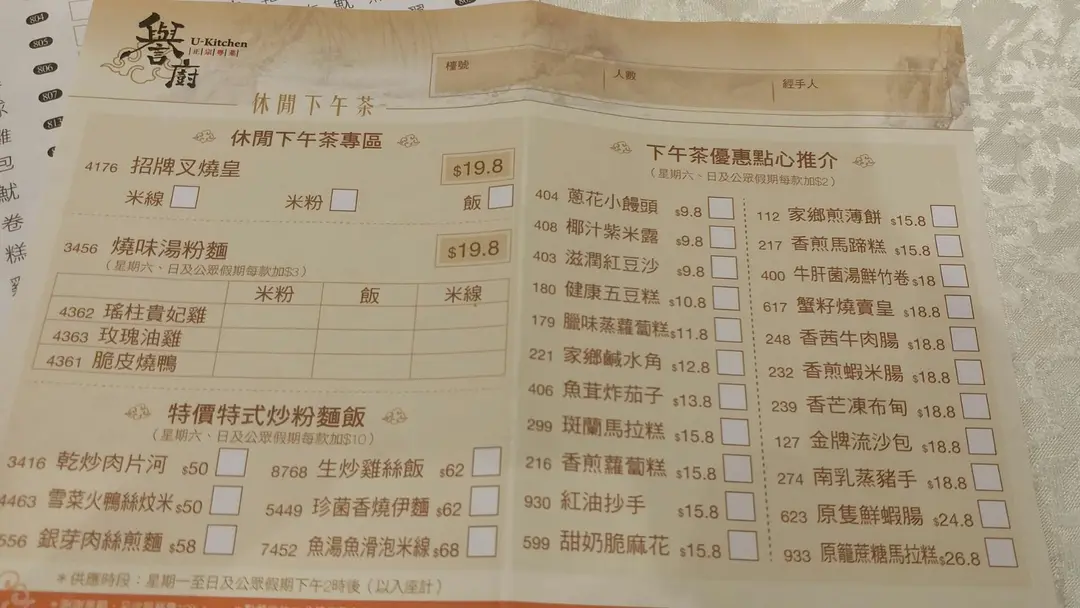 804
805
806
807
譽廚
U-Kitchen
正宗粵菜
檯號
人數
經手人
休閒下午茶
休閒下午茶專區
4176 招牌叉燒皇 $19.8
米線 米粉 飯
3456 燒味湯粉麵 $19.8
(星期六、日及公眾假期每款加$3)
米粉 飯 米線
4362 瑤柱貴妃雞
4363 玫瑰油雞
4361 脆皮燒鴨
特價特式炒粉麵飯
(星期六、日及公眾假期每款加$10)
3416 乾炒肉片河 $50
8768 生炒雞絲飯 $62
4463 雪菜火鴨絲炆米 $50
5449 珍菌香燒伊麵 $62
556 銀芽肉絲煎麵 $58
7452 魚湯魚滑泡米線 $68
*供應時段：星期一至日及公眾假期下午2時後（以入座計）
下午茶優惠點心推介
(星期六、日及公眾假期每款加$2)
404 蔥花小饅頭 $9.8
408 椰汁紫米露 $9.8
403 滋潤紅豆沙 $9.8
180 健康五豆糕 $10.8
179 臘味蒸蘿蔔糕 $11.8
221 家鄉鹹水角 $12.8
406 魚茸炸茄子 $13.8
299 斑蘭馬拉糕 $15.8
216 香煎蘿蔔糕 $15.8
930 紅油抄手 $15.8
599 甜奶脆麻花 $15.8
112 家鄉煎薄餅 $15.8
217 香煎馬蹄糕 $15.8
400 牛肝菌湯鮮竹卷 $18
617 蟹籽燒賣皇 $18.8
248 香茜牛肉腸 $18.8
232 香煎蝦米腸 $18.8
239 香芒凍布甸 $18.8
127 金牌流沙包 $18.8
274 南乳蒸豬手 $18.8
623 原隻鮮蝦腸 $24.8
933 原籠蔗糖馬拉糕 $26.8